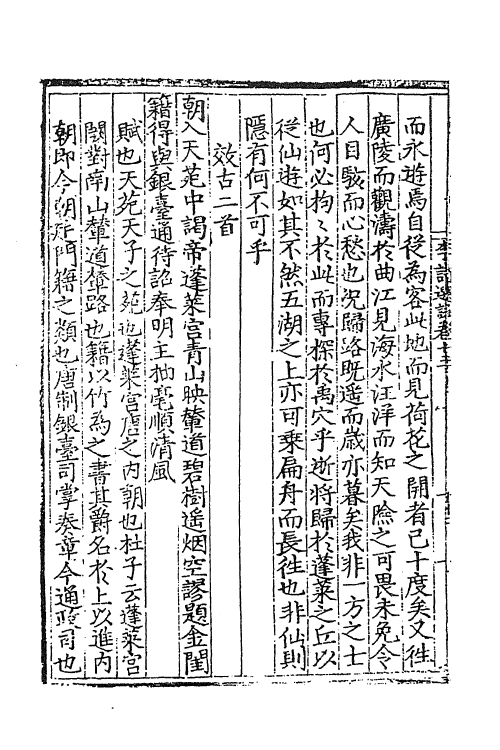 而永遊焉自從為客此地而見荷花之開者已十度矣又徃
廣陵而觀濤於曲江見海水汪洋而知天險之可畏未免令
人目駭而心愁也况歸路旣遥而歳亦暮矣我非一方之士
也何必拘〻於此而專探於禹穴乎逝將歸於蓬萊之丘以
從仙遊如其不然五湖之上亦可乗扁舟而長徃也非仙則
隱有何不可乎
效古二首
朝入天苑中謁帝蓬萊宫青山映輦道碧樹遥烟空謬題金閨
籍得與銀臺通待詔奉明主抽毫順清風
賦也天苑天子之苑也蓬萊宫唐之内朝也杜子云蓬萊宫
闕對南山輦道輦路也籍以竹為之書其爵名於上以進内
朝即今朝所門籍之類也唐制銀臺司掌奏章今通政司也